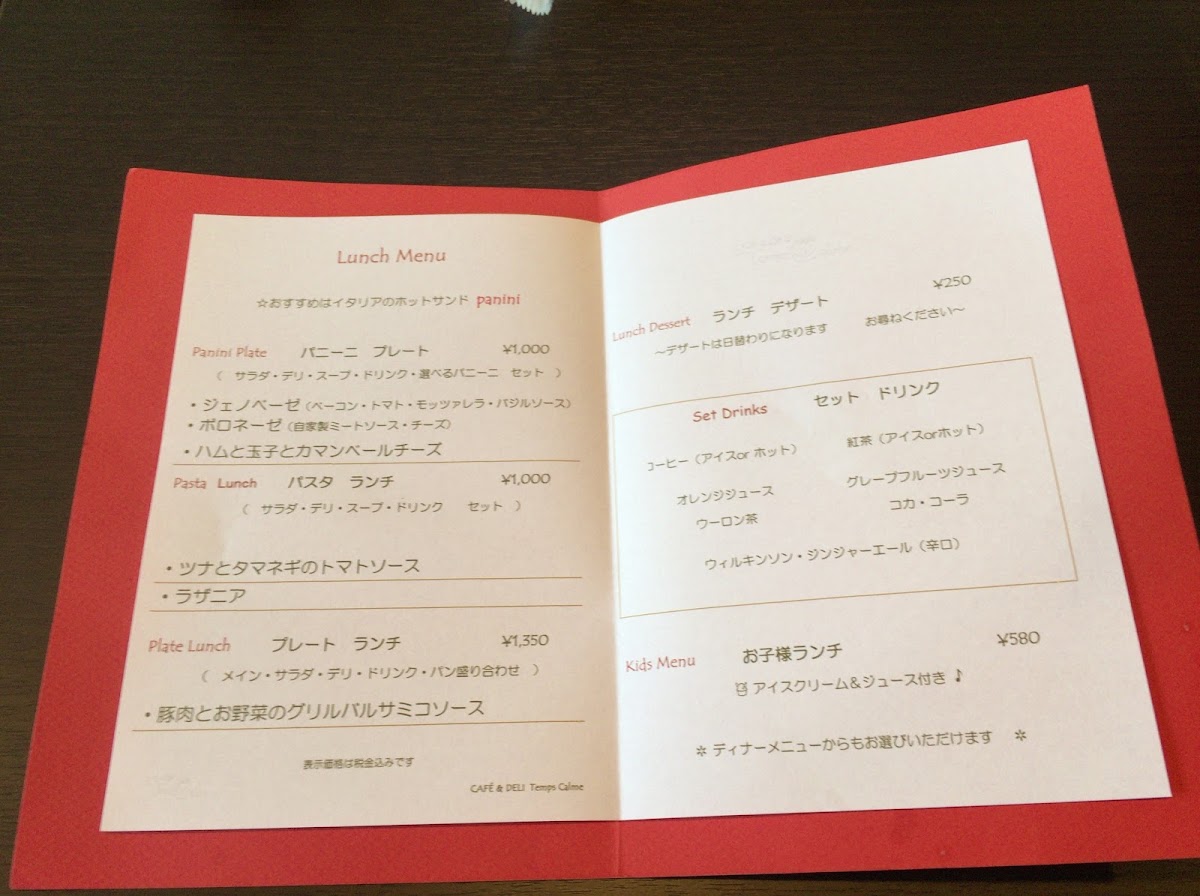 Lunch Menu
☆おすすめはイタリアのホットサンド panini
Panini Plate パニーニ プレート ¥1,000
( サラダ・デリ・スープ・ドリンク・選べるパニーニ セット )
・ジェノベーゼ(ベーコン・トマト・モッツァレラ・バジルソース)
・ボロネーゼ(自家製ミートソース・チーズ)
・ハムと玉子とカマンベールチーズ
Pasta Lunch パスタ ランチ ¥1,000
( サラダ・デリ・スープ・ドリンク セット )
・ツナとタマネギのトマトソース
・ラザニア
Plate Lunch プレート ランチ ¥1,350
( メイン・サラダ・デリ・ドリンク・パン盛り合わせ )
・豚肉とお野菜のグリルバルサミコソース
表示価格は税金込みです
CAFÉ & DELI Temps Calme
Lunch Dessert ランチ デザート ¥250
~デザートは日替わりになります お尋ねください~
Set Drinks セット ドリンク
コーヒー(アイスor ホット) 紅茶(アイスorホット)
オレンジジュース グレープフルーツジュース
ウーロン茶 コカ・コーラ
ウィルキンソン・ジンジャーエール(辛口)
Kids Menu お子様ランチ ¥580
アイスクリーム&ジュース付き ♪
✲ ディナーメニューからもお選びいただけます ✲